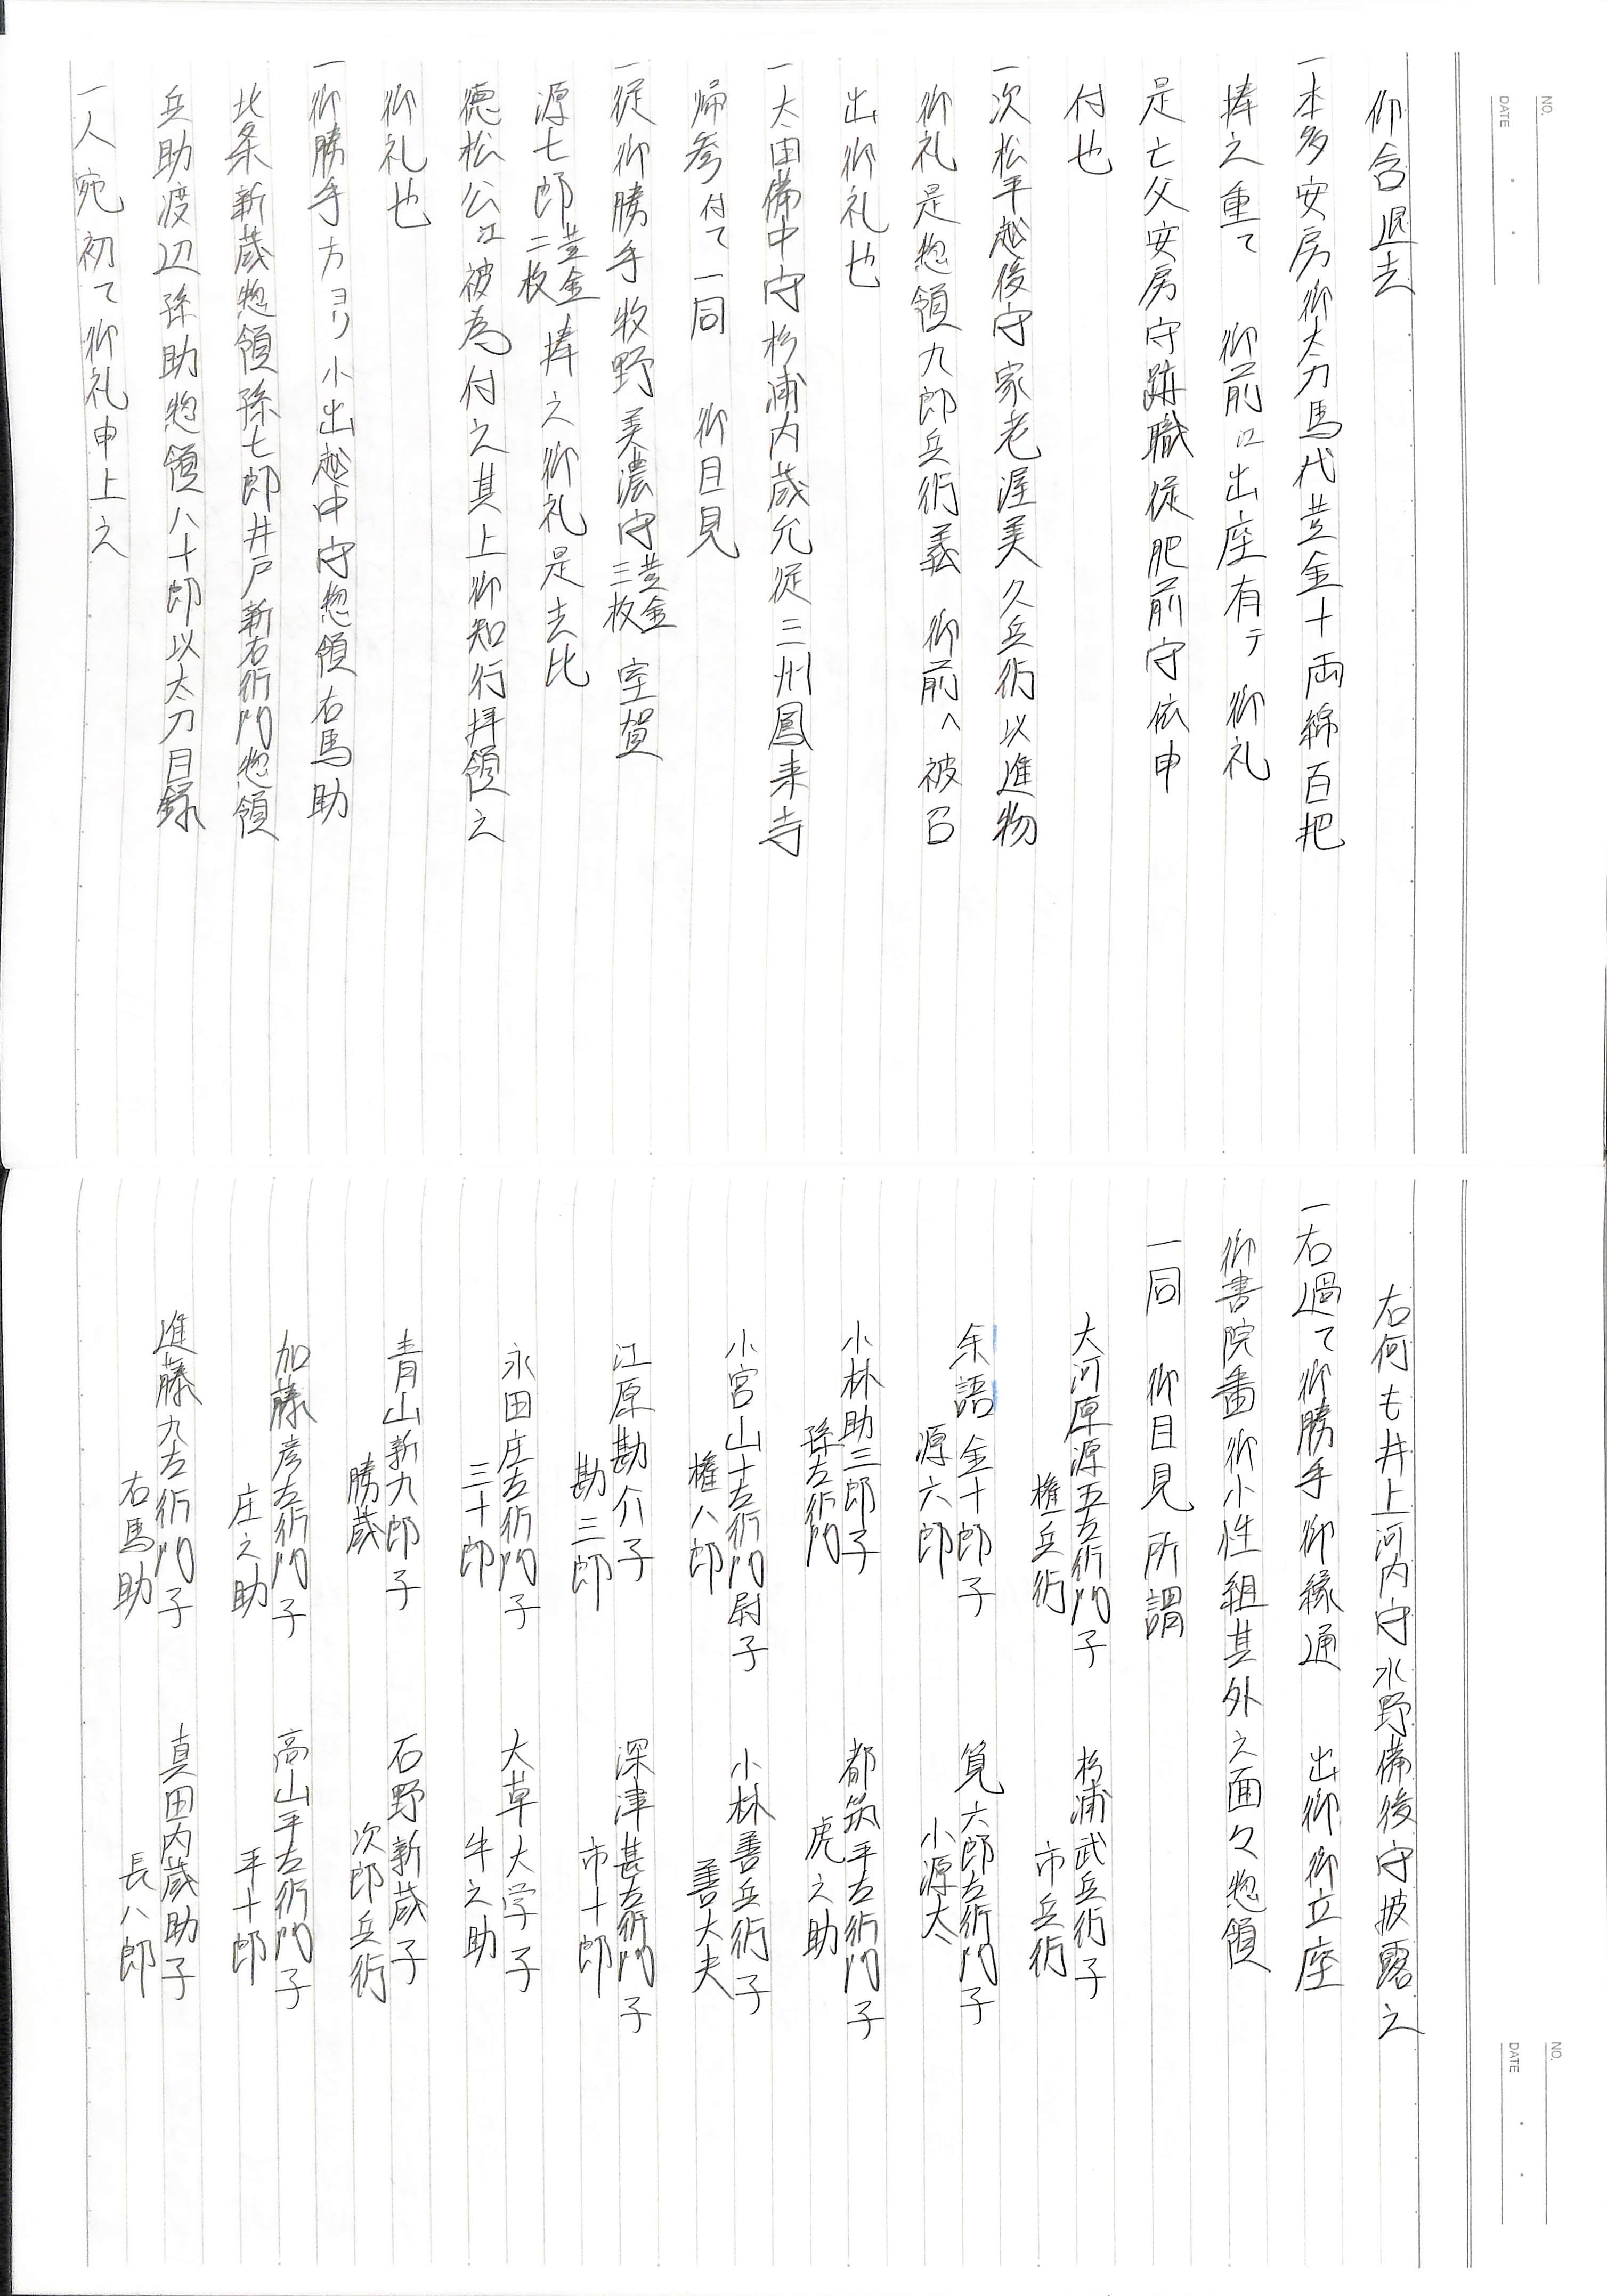 NO.
DATE
仰含退去
一本多安房御太刀馬代黄金十両綿百把
捧之重て　御前江出座有テ御礼
是亡父安房守跡職従肥前守依申
付也
一次松平越後守家老渥美久兵衛以進物
御礼是惣領九郎兵衛義　御前へ被召
出御礼也
一太田備中守杉浦内蔵允従三州鳳来寺
帰参付て一同　御目見
一従御勝手牧野美濃守黄金三枚　室賀
源七郎黄金二枚捧之御礼是去比
徳松公江被為付之其上御知行拝領之
御礼也
一御勝手方ヨリ小出越中守惣領右馬助
北条新蔵惣領孫七郎井戸新右衛門惣領
兵助渡辺孫助惣領八十郎以太刀目録
一人宛初て御礼申上之
NO.
DATE
右何も井上河内守水野備後守披露之
一右過て御勝手御縁通　出御御立座
御書院番御小性組其外之面々惣領
一同　御目見所謂
大河原源五左衛門子　権兵衛
杉浦武兵衛子　市兵衛
余語金十郎子　源六郎
筧六郎左衛門子　小源太
小林助三郎子　孫左衛門
都筑平左衛門子　虎之助
小宮山十左衛門尉子　権八郎
小林善兵衛子　善大夫
江原勘介子　勘三郎
深津甚左衛門子　市十郎
永田庄左衛門子　三十郎
大草大学子　牛之助
青山新九郎子　勝蔵
石野新蔵子　次郎兵衛
加藤彦左衛門子　庄之助
高山平左衛門子　平十郎
進藤九左衛門子　右馬助
真田内蔵助子　長八郎